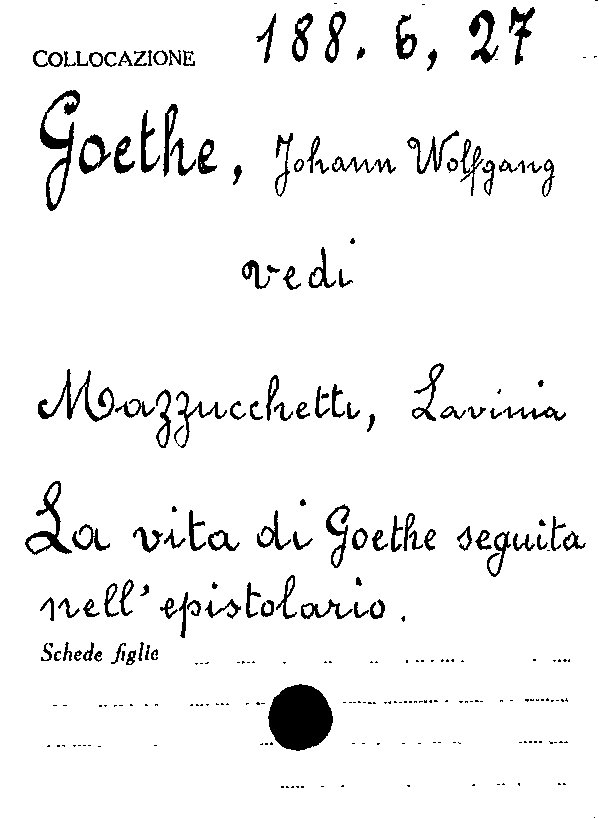 COLLOCAZIONE 188. 6, 27
Goethe, Johann Wolfgang
vedi
Mazzucchetti, Lavinia
La vita di Goethe seguita
nell'epistolario.
Schede figlie